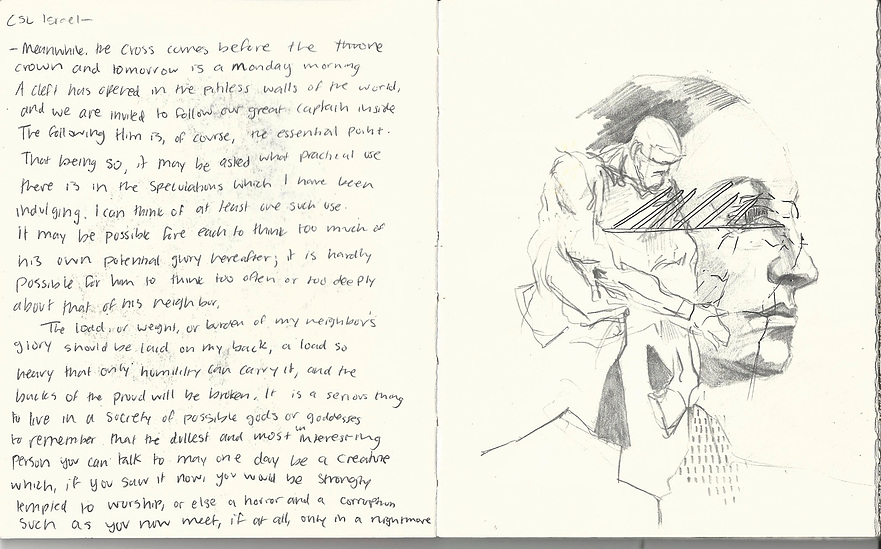 CSL Israel-
- Meanwhile. the Cross comes before the throne
crown and tomorrow is a monday morning
A cleft has opened in the pitiless walls of the world,
and we are invited to follow our great captain inside
The following Him is, of course, the essential point.
That being so, it may be asked what practical use
there is in the speculations which I have been
indulging. I can think of at least one such use.
it may be possible fore each to think too much of
his own potential glory hereafter; it is hardly
possible for him to think too often or too deeply
about that of his neighbor.
The load, or weight, or burden of my neighbor's
glory should be laid on my back, a load so
heavy that only humility can carry it, and the
backs of the proud will be broken. It is a serious thing
to live in a society of possible gods or goddesses
to remember that the dullest and most uninteresting
person you can talk to may one day be a creature
which, if you saw it now, you would be strongly
tempted to worship, or else a horror and a corruption
such as you now meet, if at all, only in a nightmare